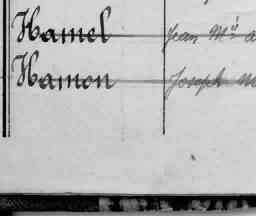 Hamel Jean Mie
Hamon Joseph